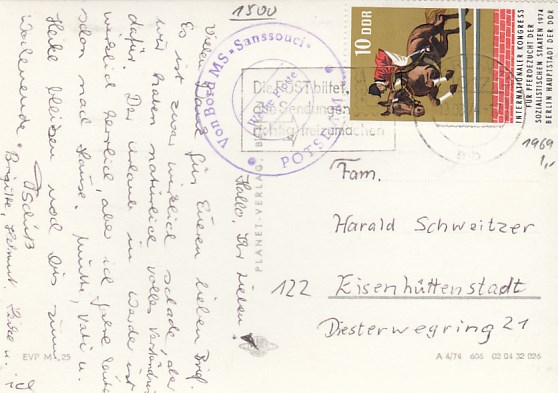 1500
Hallo, Ihr Lieben!
Vielen Dank für Euren lieben Brief.
Es ist zwar wirklich schade, aber
wir haben natürlich volles Verständnis
dafür. Der Urlaub in Werder ist
wirklich herrlich, aber ich fahre heute
schon nach Hause. Mutti, Vati u.
Heike bleiben noch bis zum
Wochenende. Tschüß
Brigitte, Helmut, Heike u.
Von Bord MS "Sanssouci"
Weiße Flotte
POTSDAM
Die POST bittet,
alle Sendungen
richtig freizumachen
10 DDR
INTERNATIONALER KONGRESS
FÜR PFERDEZUCHT DER
SOZIALISTISCHEN STAATEN 1974
BERLIN HAUPTSTADT DER DDR
1969
1,-
PLANET-VERLAG, BERLIN
Fam.
Harald Schweitzer
122 Eisenhüttenstadt
Diesterwegring 21
EVP M -,25
A 4/74 606 02 04 32 026